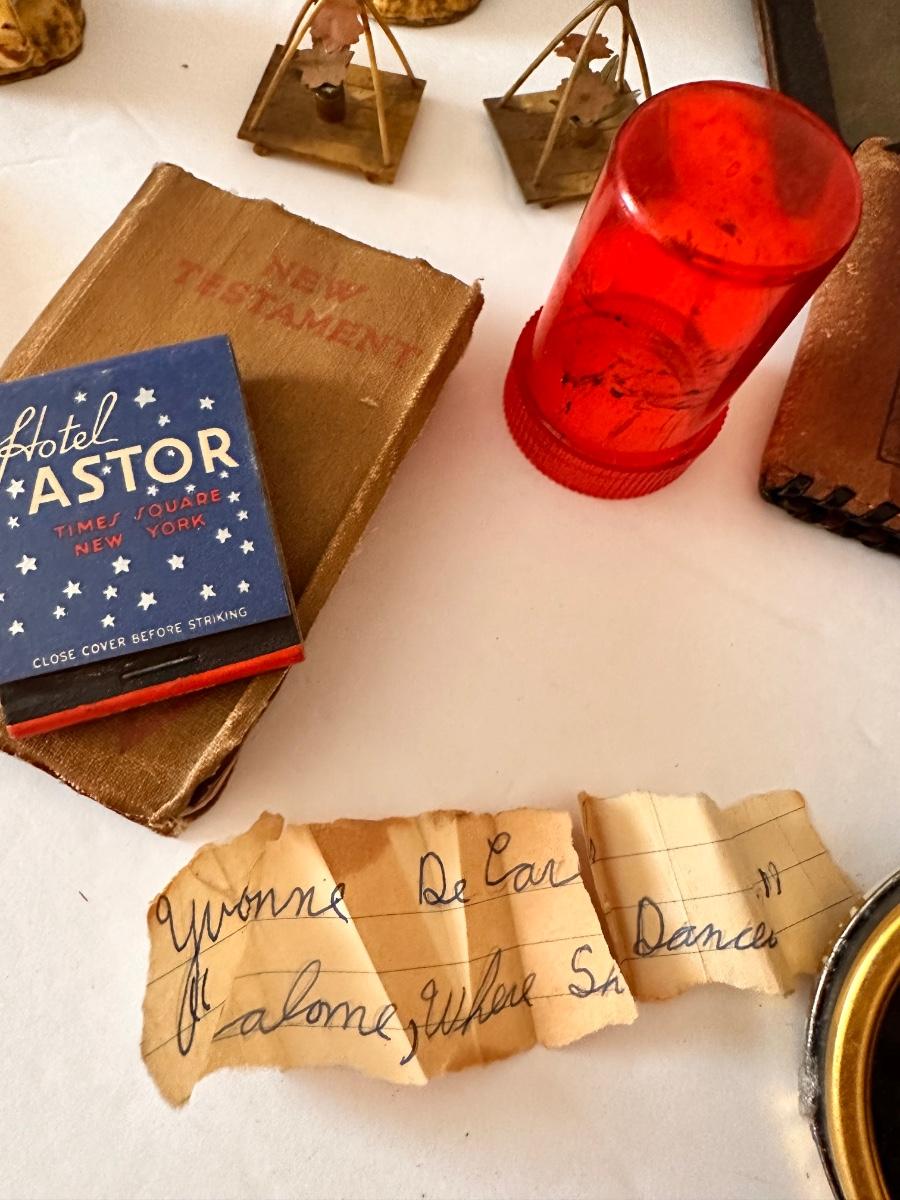 NEW
TESTAMENT
Hotel
ASTOR
TIMES SQUARE
NEW YORK
CLOSE COVER BEFORE STRIKING
Yvonne De Car
Dances"
alome, Where Sh